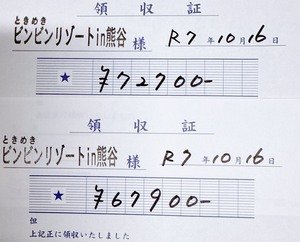 領収証
ときめき
ビンビンリゾートin熊谷 様 R7年10月16日
★ ¥72700-
領収証
ときめき
ビンビンリゾートin熊谷 様 R7年10月16日
★ ¥67900-
但
上記正に領収いたしました